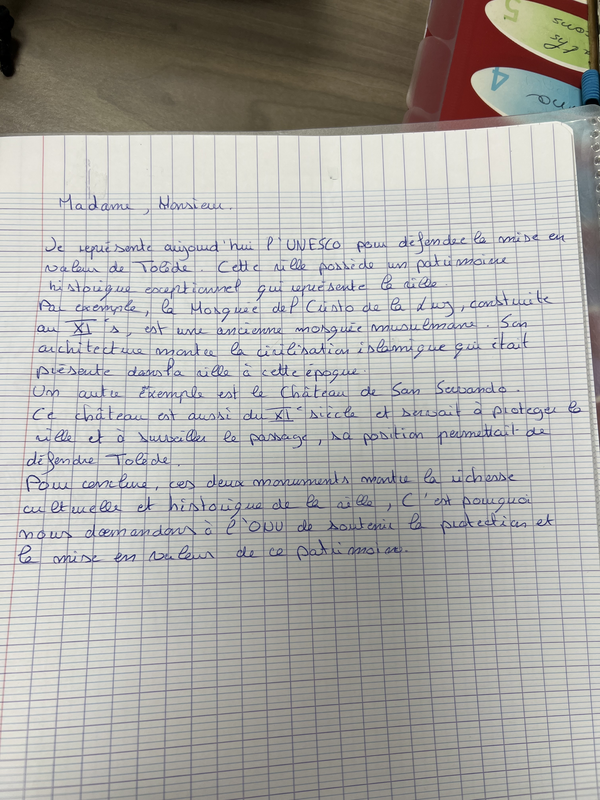 Madame, Monsieur.
Je représente aujourd'hui l'UNESCO pour défendre la mise en
valeur de Tolède. Cette ville possède un patrimoine
historique exceptionnel qui représente la ville.
Par exemple, la Mosquée del Cristo de la Luz, construite
au XI ͤ s, est une ancienne mosquée musulmane. Son
architecture montre la civilisation islamique qui était
présente dans la ville à cette époque.
Un autre Exemple est le Château de San Servando.
Ce château est aussi du XI ͤ siècle et servait à protéger la
ville et à surveiller le passage, sa position permettait de
défendre Tolède.
Pour conclure, ces deux monuments montre la richesse
culturelle et historique de la ville, C'est pourquoi
nous demandons à l'ONU de soutenir la protection et
la mise en valeur de ce patrimoine.
5
4